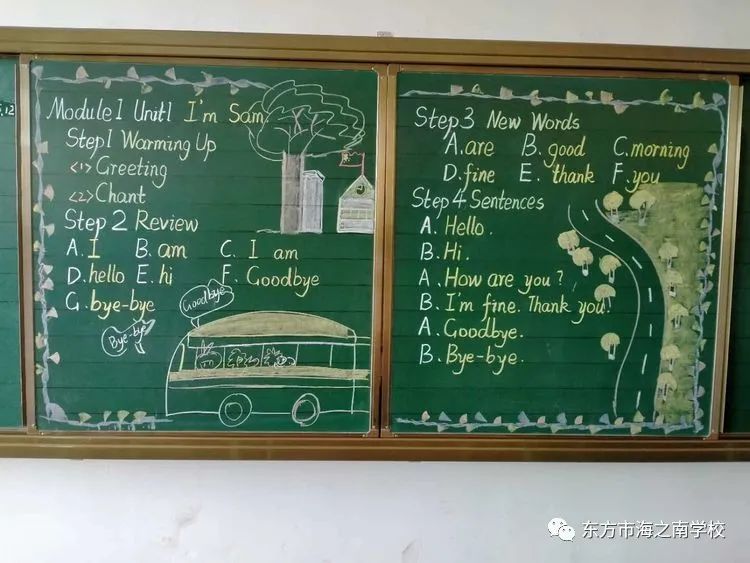 5.12
Module 1 Unit1 I'm Sam
Step1 Warming Up
<1> Greeting
<2> Chant
Step 2 Review
A. I B. am C. I am
D. hello E. hi F. Goodbye
G. bye-bye
Goodbye
Bye-bye
Step3 New Words
A. are B. good C. morning
D. fine E. thank F. you
Step 4 Sentences
A. Hello.
B. Hi.
A. How are you?
B. I'm fine. Thank you.
A. Goodbye.
B. Bye-bye.
东方市海之南学校